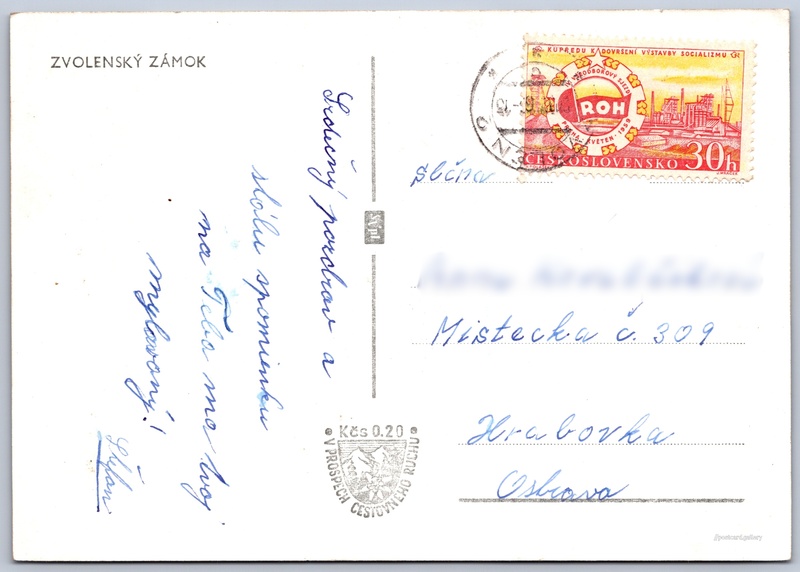 ZVOLENSKÝ ZÁMOK
Srdečný pozdrav a
stálu spomienku
na Teba má tvoj
mylovaný!
Štefan
SVpl
Kčs 0.20
V PROSPECH CESTOVNÉHO RUCHU
KUPŘEDU K DOVRŠENÍ VÝSTAVBY SOCIALIZMU
ODBOROVÝ SJEZD
ROH
PRAHA KVĚTEN 1959
ČESKOSLOVENSKO 30h
slčna
Místecka č. 309
Hrabovka
Ostrava
postcard.gallery